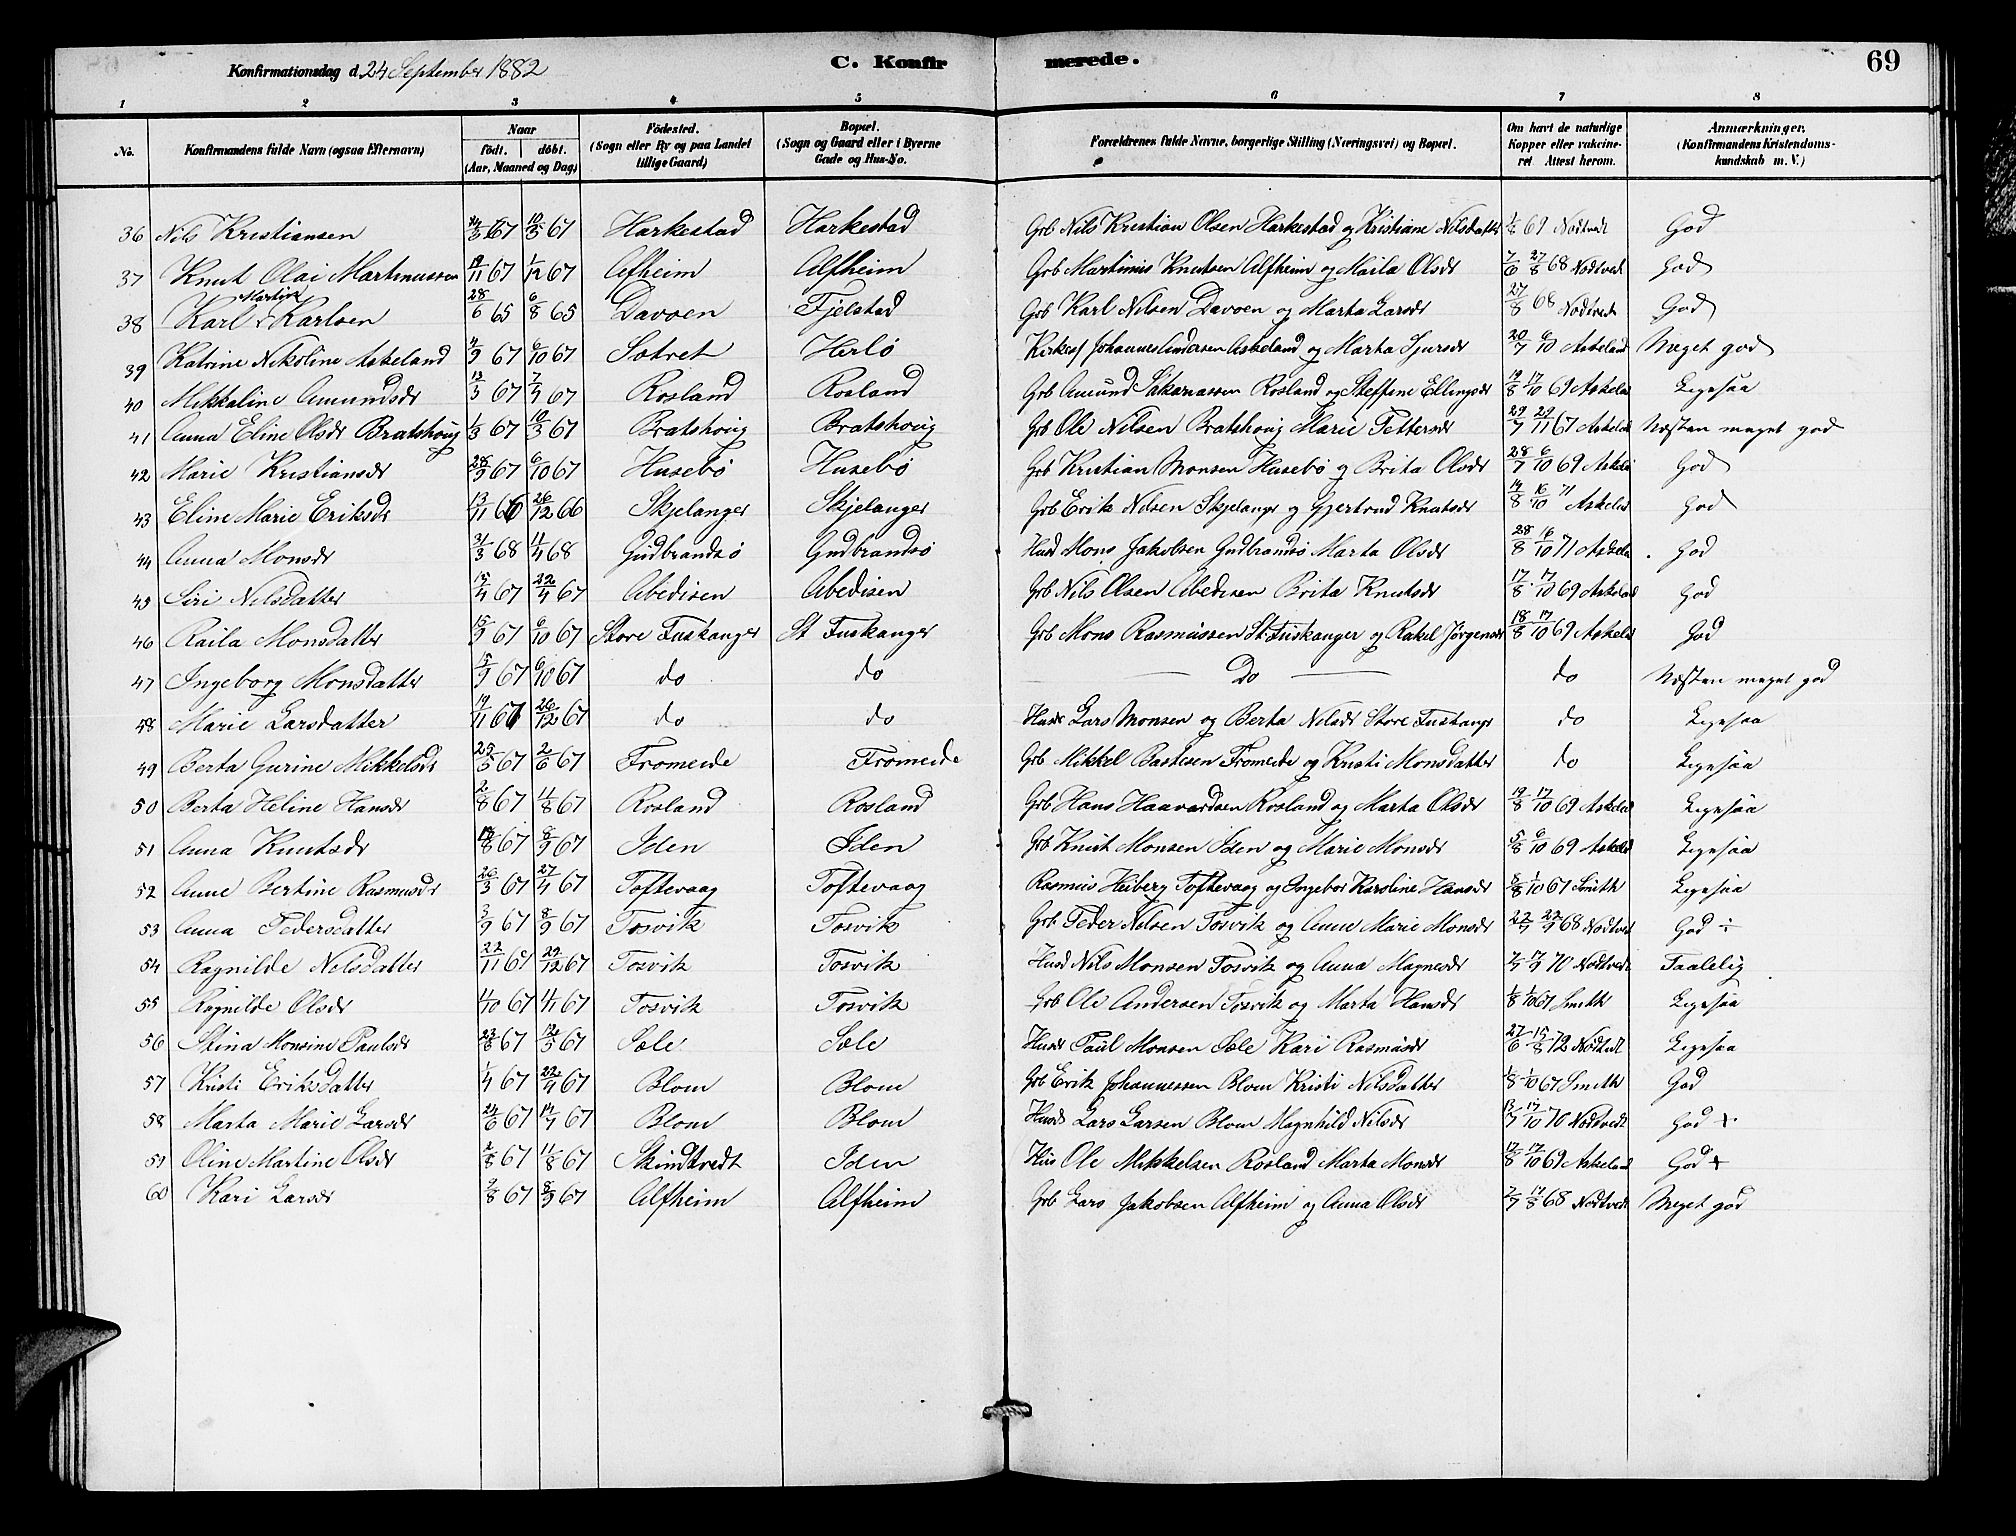 Konfirmationsdag d. 24 September 1882 C. Konfirmerede. 69
1 2 3 4 5 6 7 8
No. Konfirmandens fulde Navn (ogsaa Efternavn) Naar födt. döbt. (Aar, Maaned og Dag) Födested. (Sogn eller By og paa Landet tillige Gaard) Bopæl. (Sogn og Gaard eller i Byerne Gade og Hus-No. Forældrenes fulde Navne, borgerlige Stilling (Næringsvei) og Bopæl. Om havt de naturlige Kopper eller vakcineret Attest herom. Anmærkninger. (Konfirmandens Kristendomskundskab m. V.)
36 Nils Kristiansen 10/5 67 Harkestad Harkestad Grb Nils Kristian Olsen Harkestad og Kristiane Nilsdatter 69 Nodtvedt God
37 Knut Olai Martinussen 19/11 67 1/12 67 Alfheim Alfheim Grb Martinus Knutsen Alfheim og Maila Olsdr 7/6 27/8 68 Nodtvedt God
38 Karl Martin Karlsen 28/6 65 6/8 65 Davoen Fjelstad Grb Karl Nilsen Davoen og Marta Larsdr 27/8 68 Nodtvedt God
39 Katrine Nikoline Askeland 4/9 67 6/10 67 Solvet Herlö Kirkes. Johannes Andersen Askeland og Marta Sjursdr 20/7 6/10 Askeland Meget god
40 Mikkaline Amundsdr 13/3 67 7/4 67 Rosland Rosland Grb Amund Sakariassen Rosland og Steffine Ellingsdr 19/8 17/10 69 Askelad Ligesaa
41 Anna Eline Olsdr Bratshoug 1/3 67 10/3 67 Bratshoug Bratshoug Grb Ole Nilsen Bratshoug Marie Pettersdr 29/7 29/11 67 Askelad Næsten meget god
42 Marie Kristiansdr 28/9 67 6/10 67 Husebö Husebö Grb Kristian Monsen Husebö og Brita Olsdr 28/7 6/10 69 Askela God
43 Eline Marie Eriksdr 13/11 66 26/12 66 Skjelanger Skjelanger Grb Erik Nilsen Skjelanger og Gjertrud Knutsdr 14/8 16/10 71 Askelad God
44 Anna Monsdr 31/3 68 11/4 68 Gudbrandsö Gudbrandsö Husd Mons Jakobsen Gudbrandsö Marta Olsdr 28/8 16/10 71 Askela God
45 Siri Nilsdatter 15/4 67 22/4 67 Abedisen Abedisen Grb Nils Olsen Abedisen Brita Knutsdr 17/8 17/10 69 Askelad God
46 Raila Monsdatter 15/9 67 6/10 67 Store Fuskanger St Fuskanger Grb Mons Rasmussen St. Fuskanger og Rakel Jörgensdr 18/8 17/10 69 Askelad God
47 Ingeborg Monsdatter 15/9 67 6/10 67 do do Do do Næsten meget god
48 Marie Larsdatter 19/11 67 26/12 67 do do Husd Lars Monsen og Berta Nilsdr Store Fuskanger do Ligesaa
49 Berta Gurine Mikkelsdr 25/5 67 2/6 67 Fromeide Fromeide Grb Mikkel Bastesen Fromeide og Kristi Monsdatter do Ligesaa
50 Berta Heline Hansdr 2/8 67 11/8 67 Rosland Rosland Grb Hans Haavardsen Rosland og Marta Olsdr 19/8 17/10 69 Askelad Ligesaa
51 Anna Knutsdr 67 8/9 67 Iden Iden Grb Knut Monsen Iden og Marie Monsdr 5/8 6/10 69 Askelad Ligesaa
52 Anne Bertine Rasmusdr 26/3 67 27/4 67 Toftevaag Toftevaag Rasmus Heiberg Toftevaag og Ingebor Karoline Hansdr 8/8 1/10 67 Smith Ligesaa
53 Anna Pedersdatter 3/9 67 8/9 67 Tosvik Tosvik Grb Peder Nilsen Tosvik og Anne Marie Monsdr 68 Nodtved God ÷
54 Ragnilde Nilsdatter 22/11 67 29/12 67 Tosvik Tosvik Husd Nils Monsen Tosvik og Anna Magnesdr 70 Nodtvedt Taalelig
55 Ragnilde Olsdr 4/10 67 4/11 67 Tosvik Tosvik Grb Ole Andersen Tosvik og Marta Hansdr 1/8 1/10 67 Smith Ligesaa
56 Stina Monsine Paulsdr 23/8 67 67 Sæle Sæle Husd Paul Monsen Sæle Kari Rasmusdr 27/6 15/8 72 Nodtvedt Ligesaa
57 Kristi Eriksdatter 1/4 67 22/4 67 Blom Blom Grb Erik Johannessen Blom Kristi Nilsdatter 1/8 1/10 67 Smith God
58 Marta Marie Larsdr 24/6 67 14/7 67 Blom Blom Husd Lars Larsen Blom Magnhild Nilsdr 13/7 17/10 70 Nodtvedt God +
59 Oline Martine Olsdr 2/8 67 11/8 67 Skindtvedt Iden Hus Ole Mikkelsen Rosland Marta Monsdr 17/8 17/10 69 Askeland God +
60 Kari Larsdr 2/8 67 8/9 67 Alfheim Alfheim Grb Lars Jakobsen Alfheim og Anna Olsdr 68 Nodtvedt Meget god